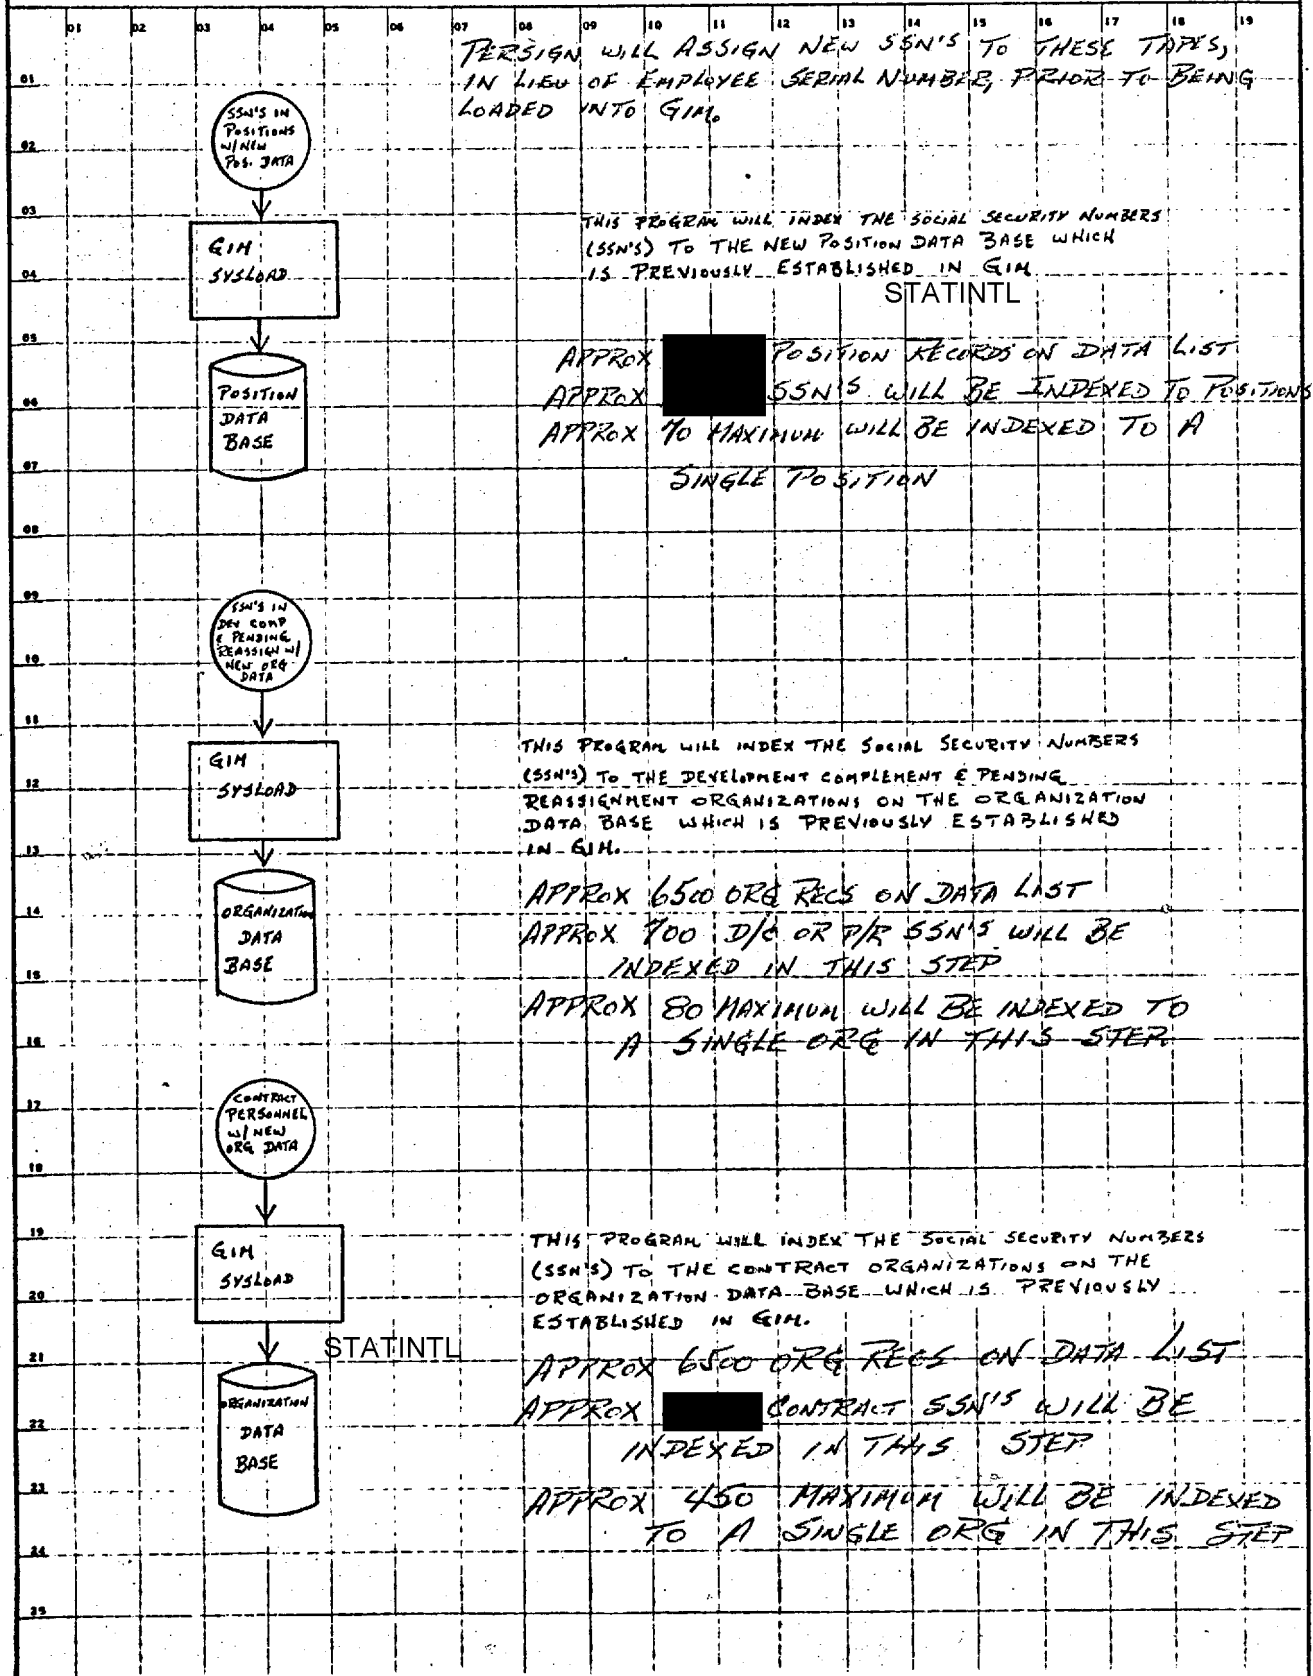 01 02 03 04 05 07 08 09 10 11 12 13 14 15 16 17 18 19
PERSIGN WILL ASSIGN NEW SSN'S TO THESE TAPES,
01
IN LIEU OF EMPLOYEE SERIAL NUMBER, PRIOR TO BEING
LOADED INTO GIM.
SSN'S IN
POSITIONS
W/NEW
POS. DATA
02
03
GIM
SYSLOAD
04
THIS PROGRAM WILL INDEX THE SOCIAL SECURITY NUMBERS
(SSN'S) TO THE NEW POSITION DATA BASE WHICH
IS PREVIOUSLY ESTABLISHED IN GIM
STATINTL
05
APPROX POSITION RECORDS ON DATA LIST
APPROX SSN'S WILL BE INDEXED TO POSITIONS
APPROX 70 MAXIMUM WILL BE INDEXED TO A
SINGLE POSITION
POSITION
DATA
BASE
06
07
08
09
SSN'S IN
DEV COMP
& PENDING
REASSIGN W/
NEW ORG
DATA
10
11
GIM
SYSLOAD
12
THIS PROGRAM WILL INDEX THE SOCIAL SECURITY NUMBERS
(SSN'S) TO THE DEVELOPMENT COMPLEMENT & PENDING
REASSIGNMENT ORGANIZATIONS ON THE ORGANIZATION
DATA BASE WHICH IS PREVIOUSLY ESTABLISHED
IN GIM.
13
ORGANIZATION
DATA
BASE
14
15
APPROX 6500 ORG RECS ON DATA LIST
APPROX 700 D/C OR P/R SSN'S WILL BE
INDEXED IN THIS STEP
APPROX 80 MAXIMUM WILL BE INDEXED TO
A SINGLE ORG IN THIS STEP
16
17
CONTRACT
PERSONNEL
W/ NEW
ORG DATA
18
19
GIM
SYSLOAD
20
THIS PROGRAM WILL INDEX THE SOCIAL SECURITY NUMBERS
(SSN'S) TO THE CONTRACT ORGANIZATIONS ON THE
ORGANIZATION DATA BASE WHICH IS PREVIOUSLY
ESTABLISHED IN GIM.
21
STATINTL
ORGANIZATION
DATA
BASE
22
23
APPROX 6500 ORG RECS ON DATA LIST
APPROX CONTRACT SSN'S WILL BE
INDEXED IN THIS STEP
APPROX 450 MAXIMUM WILL BE INDEXED
TO A SINGLE ORG IN THIS STEP
24
25